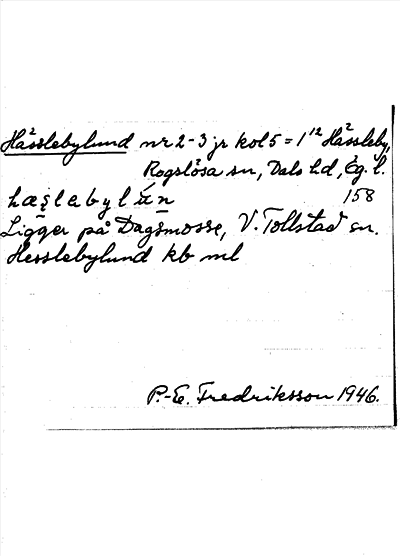 Hässlebylund nr 2-3 jr kol 5 = 1¹² Hässleby,
Rogslösa sn, Dals hd, Ög. l.
158
hæslabylun
Ligger på Dagsmosse, V. Tollstad sn.
Hesslebylund kb ml
P.-E. Fredriksson 1946.